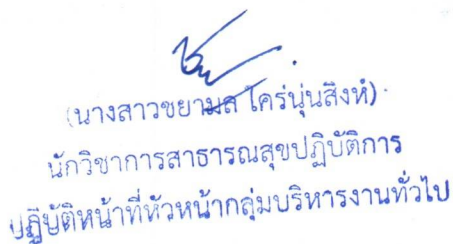 (นางสาวชยามล ไคร่นุ่นสิงห์)
นักวิชาการสาธารณสุขปฏิบัติการ
ปฏิบัติหน้าที่หัวหน้ากลุ่มบริหารงานทั่วไป